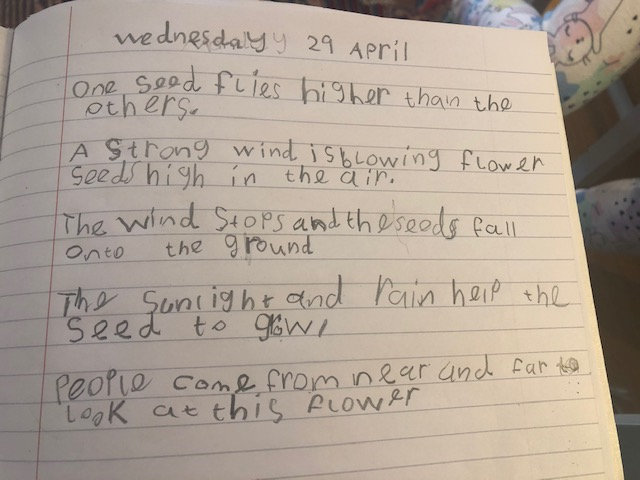 Wednesday 29 April
One Seed flies higher than the
others.
A Strong wind is blowing flower
Seeds high in the air.
The Wind Stops and the seeds fall
Onto the ground
The Sunlight and rain help the
Seed to grow,
People come from near and far to
Look at this flower